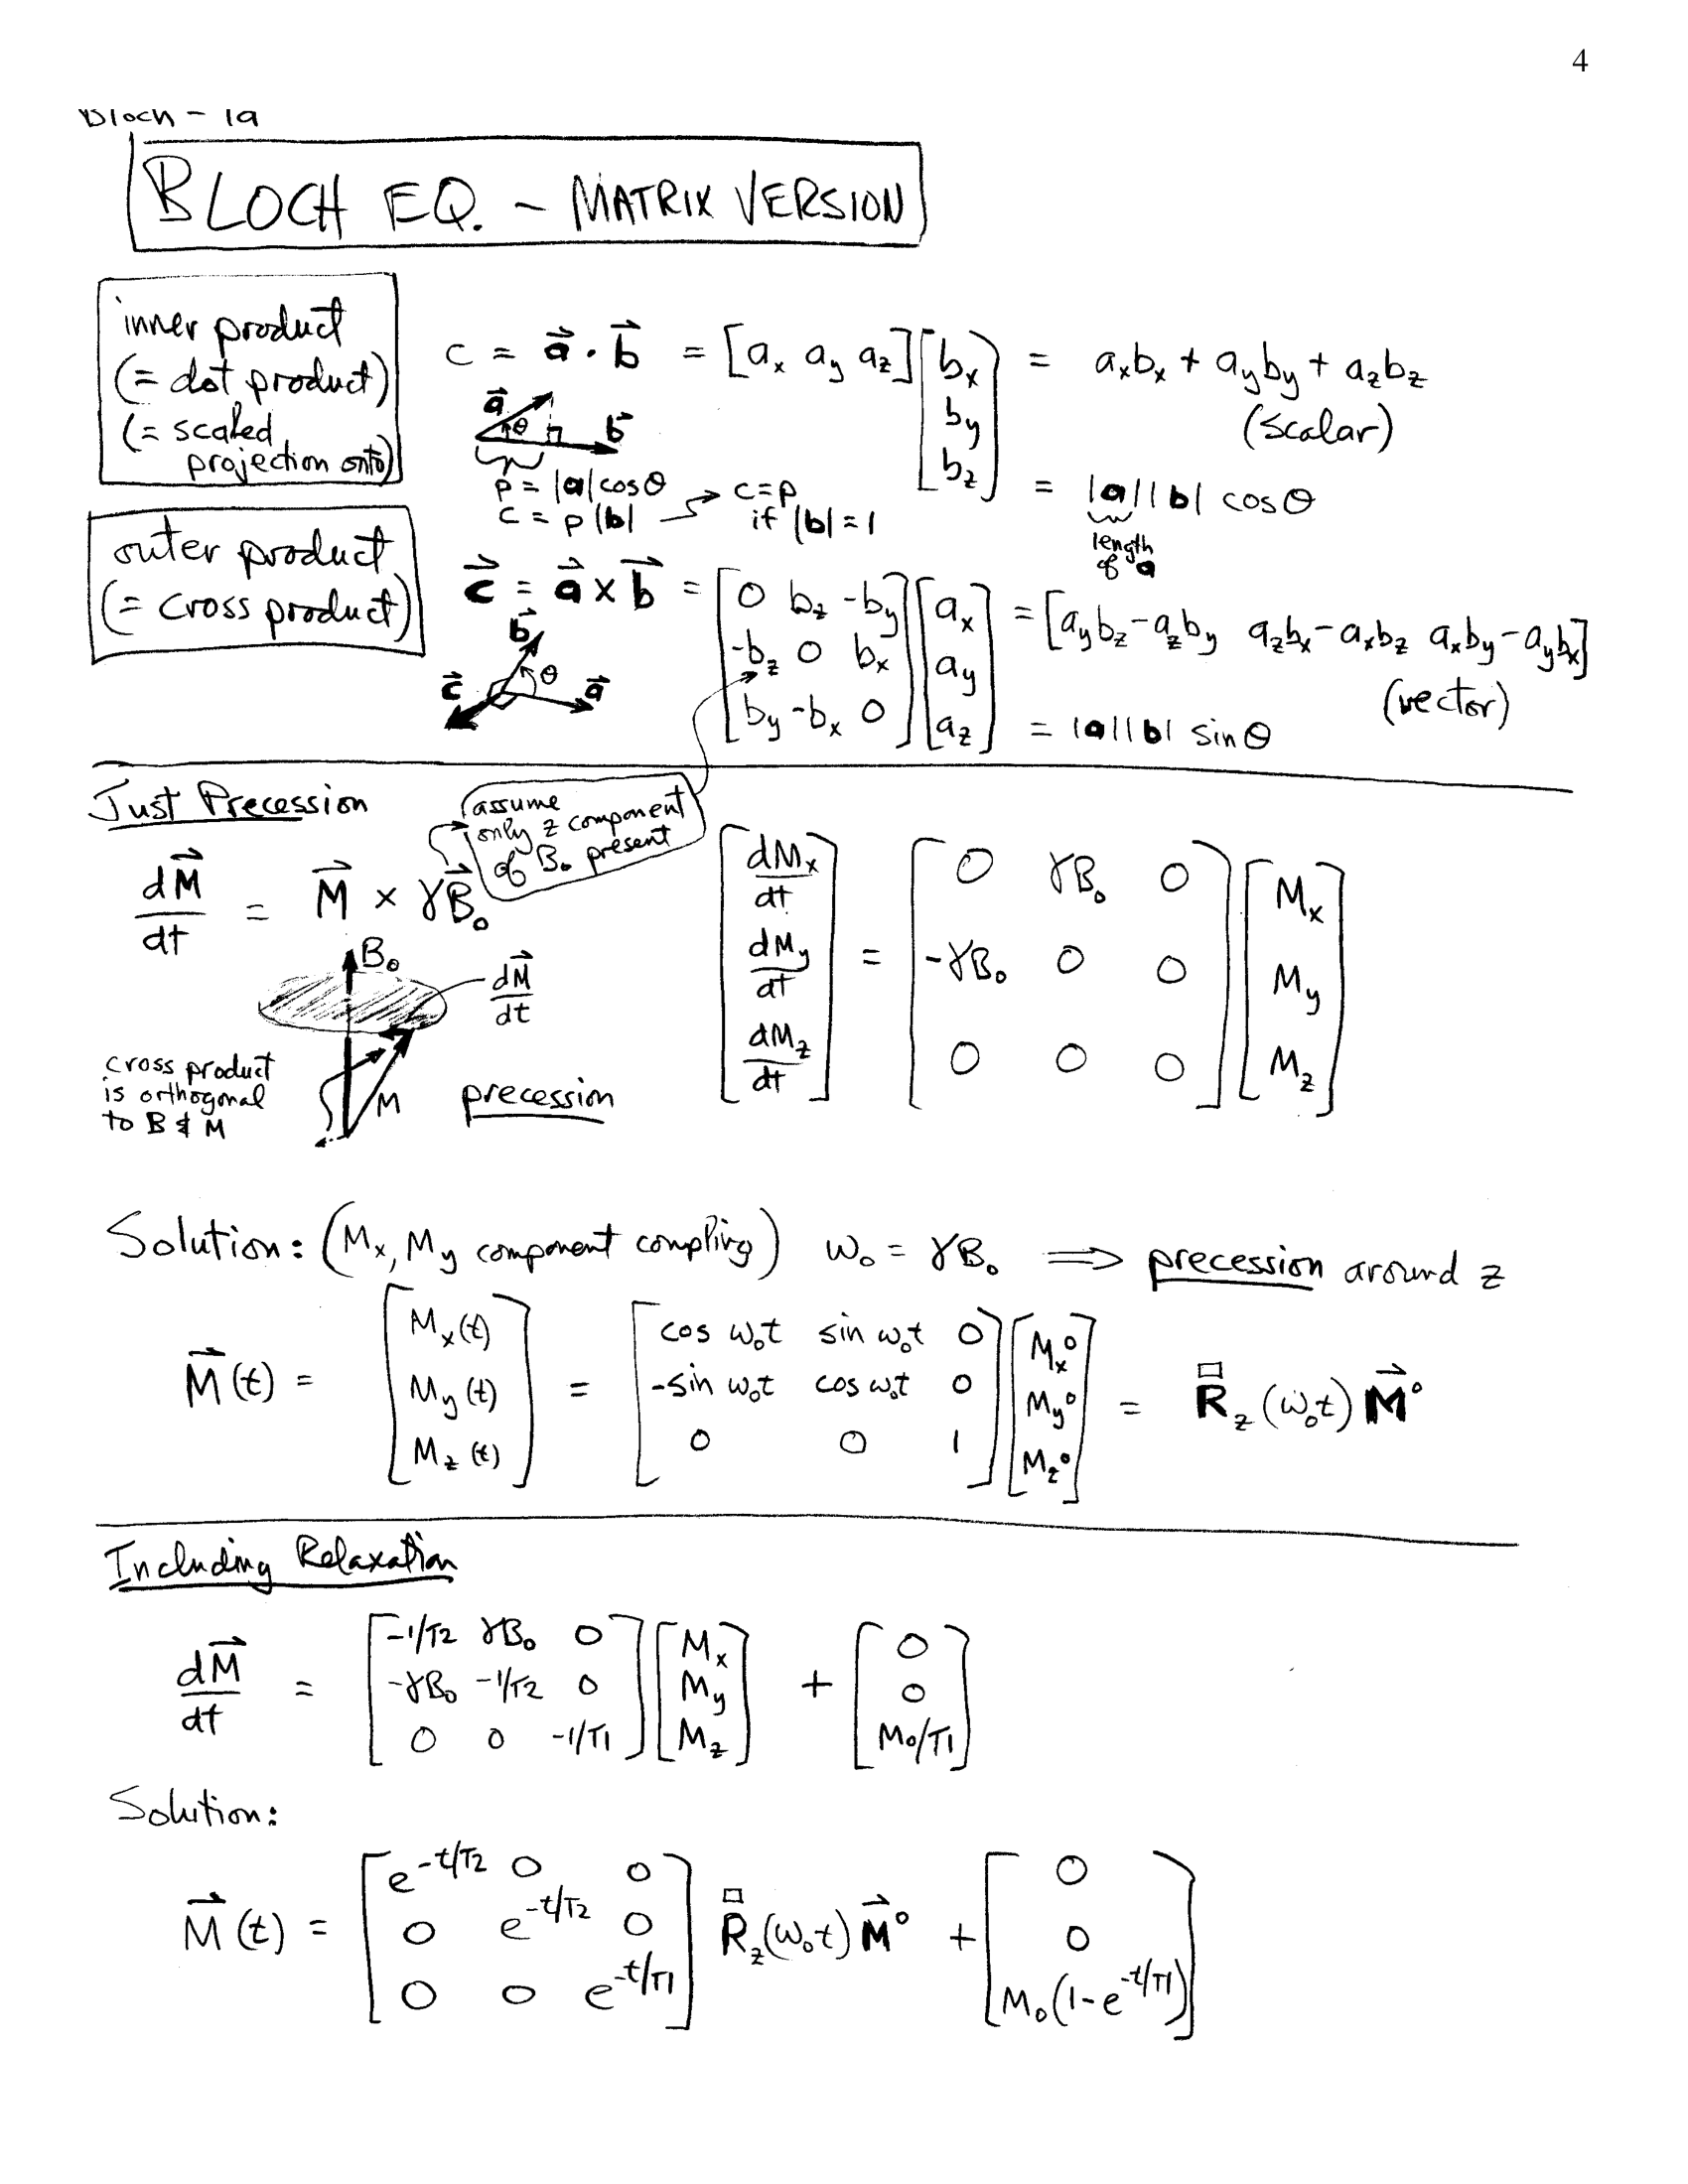 4
Bloch - 1a
BLOCH EQ. - MATRIX VERSION
inner product
(= dot product)
(= scaled
projection onto)
c = a⃗ · b⃗ = [aₓ a_y a_z] [bₓ b_y b_z] = aₓbₓ + a_yb_y + a_zb_z
(scalar)
a⃗ θ b⃗
p = |a| cosθ
c = p |b| → c = p if |b| = 1
= |a||b| cosθ
length of a
outer product
(= cross product)
c⃗ = a⃗ × b⃗ = [0 b_z -b_y; -b_z 0 bₓ; b_y -bₓ 0] [aₓ a_y a_z] = [a_yb_z - a_zb_y a_zbₓ - aₓb_z aₓb_y - a_ybₓ]
(vector)
b⃗ θ c⃗ a⃗
= |a||b| sinθ
Just Precession
assume
only z component
of B₀ present
dM⃗/dt = M⃗ × γB⃗₀
[dMₓ/dt; dM_y/dt; dM_z/dt] = [0 γB₀ 0; -γB₀ 0 0; 0 0 0] [Mₓ; M_y; M_z]
B₀
dM⃗/dt
cross product
is orthogonal
to B & M
M
precession
Solution: (Mₓ, M_y component coupling) ω₀ = γB₀ ⟹ precession around z
M⃗(t) = [Mₓ(t); M_y(t); M_z(t)] = [cos ω₀t sin ω₀t 0; -sin ω₀t cos ω₀t 0; 0 0 1] [Mₓ⁰; M_y⁰; M_z⁰] = R_z(ω₀t) M⃗⁰
Including Relaxation
dM⃗/dt = [-1/T2 γB₀ 0; -γB₀ -1/T2 0; 0 0 -1/T1] [Mₓ; M_y; M_z] + [0; 0; M₀/T1]
Solution:
M⃗(t) = [e^-t/T2 0 0; 0 e^-t/T2 0; 0 0 e^-t/T1] R_z(ω₀t) M⃗⁰ + [0; 0; M₀(1-e^-t/T1)]